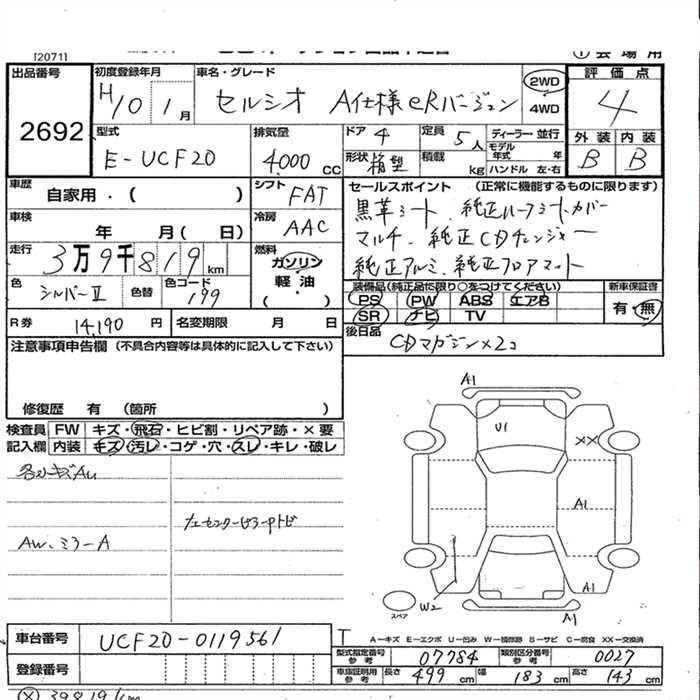 [2071]
出品番号
2692
初度登録年月
H10 1月
車名・グレード
セルシオ A仕様eRバージョン
2WD
4WD
評価点
4
外装 内装
B B
型式
E-UCF20
排気量
4000 CC
ドア 4
形状 箱型
定員 5人
積載 kg
ディーラー・並行
モデル年式 年
ハンドル 左・右
車歴
自家用・( )
シフト FAT
車検 年 月( 日)
冷房 AAC
走行
3万9千819 km
燃料
ガソリン
軽油
( )
色 シルバーⅡ
色替
色コード 199
セールスポイント (正常に機能するものに限ります)
黒革シート、純正ハーフシートカバー
マルチ、純正CDチェンジャー
純正アルミ、純正フロアマット
装備品(純正品に限り○をつけてください)
PS PW ABS エアB
SR ナビ TV
新車保証書
有・無
R券 14,190 円
名変期限 月 日
後日品
CDマガジン×2コ
注意事項申告欄 (不具合内容等は具体的に記入して下さい)
修復歴 有 (箇所 )
検査員記入欄
FW キズ・飛石・ヒビ割・リペア跡・×要
内装 キズ・汚レ・コゲ・穴・スレ・キレ・破レ
AW、ミラーA
A1
U1
XX
A1
A1
W2
A1
スペア
A-キズ E-エクボ U-凹み W-補修跡 S-サビ C-腐食 XX-交換済
車台番号 UCF20-0119561
登録番号
型式指定番号 参考 07784
類別区分番号 参考 0027
車庫証明用 参考
長さ 499 cm
幅 183 cm
高さ 143 cm